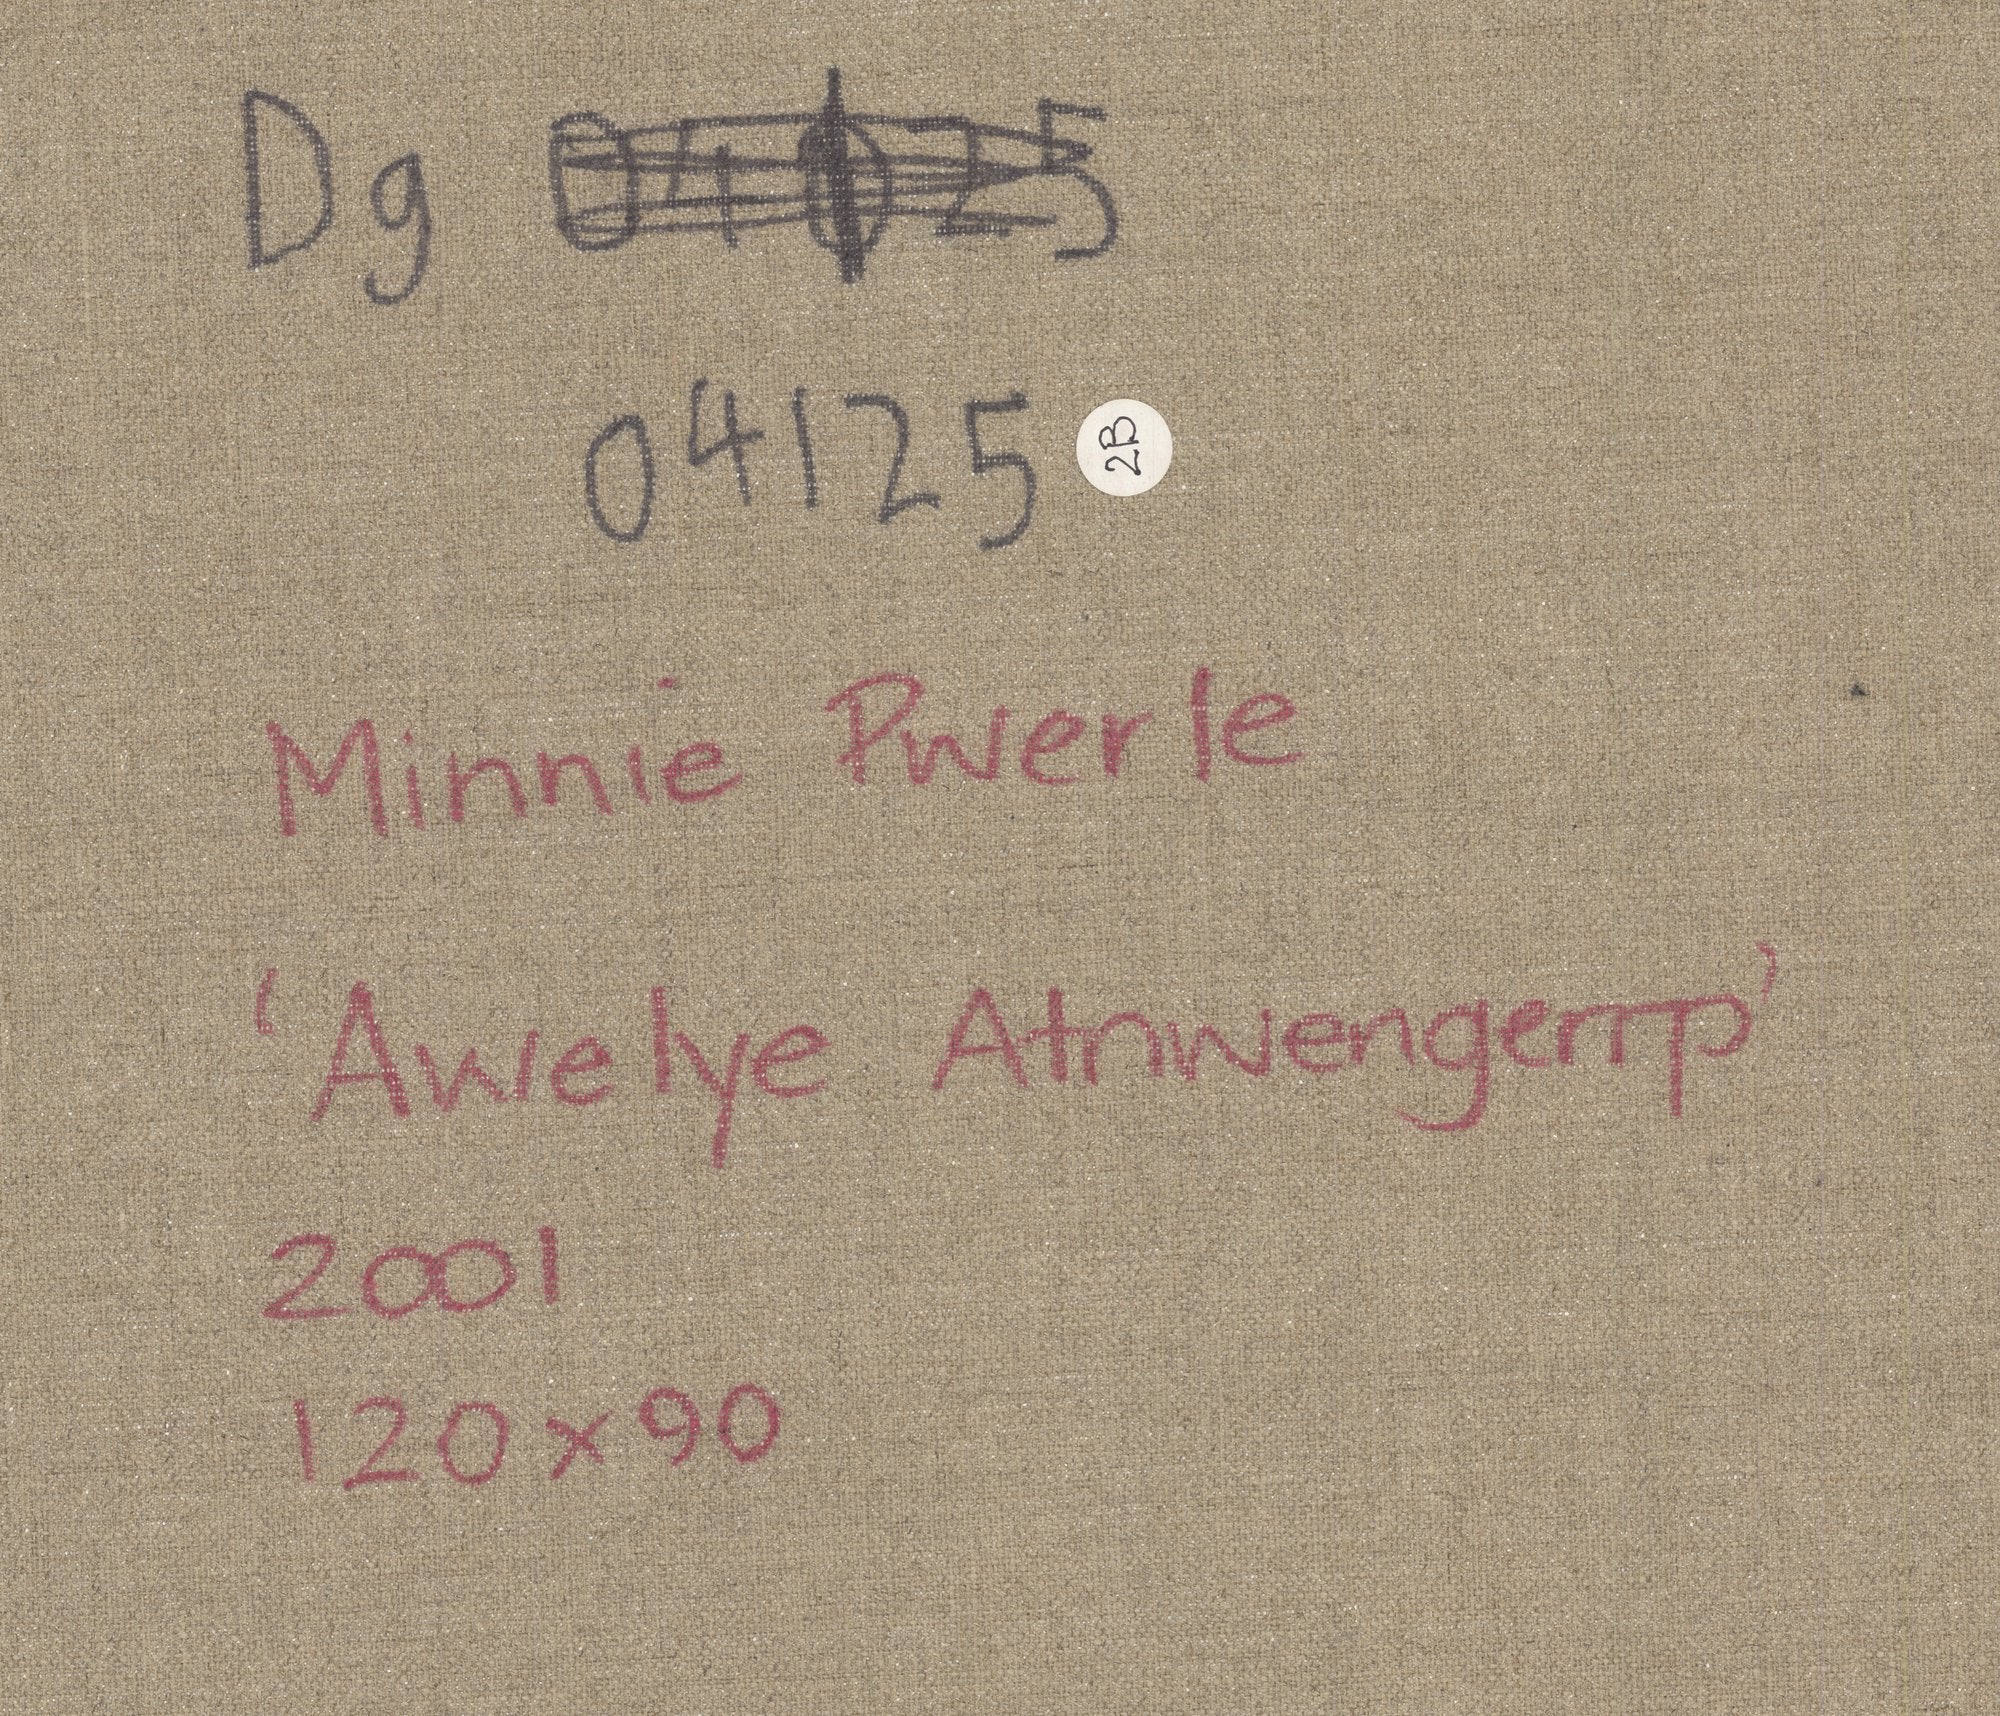 Dg
04125
2B
Minnie Pwerle
'Awelye Atnwengerrp'
2001
120x90